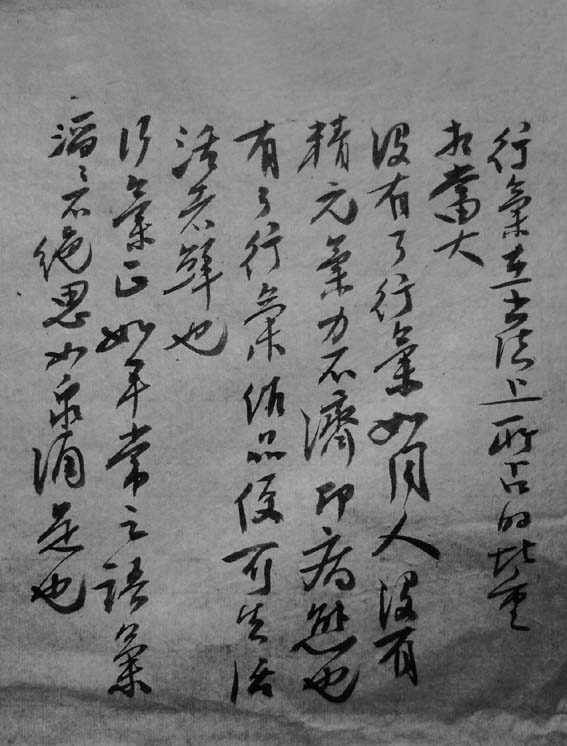 行氣在書法上所占的比重
相當大
没有了行氣如同人没有
精元氣力不濟即病態也
有了行氣作品便可生活
活者鮮也
行氣正如平常之語氣
滔々不絕思如泉涌是也